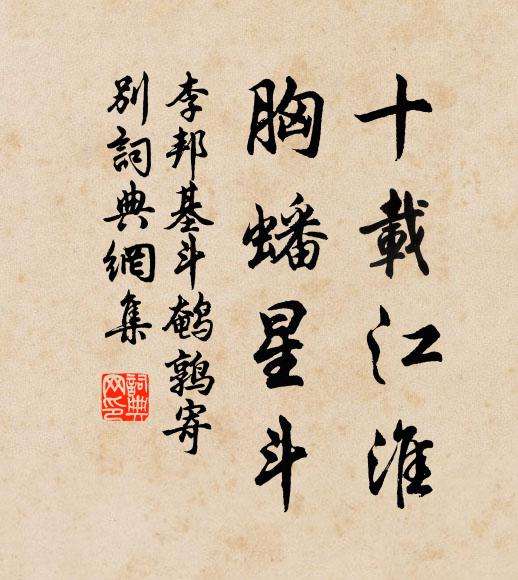 十載江淮
胸蟠星斗
李邦基斗鵪鶉寄
別詞典網集
詞典
网印